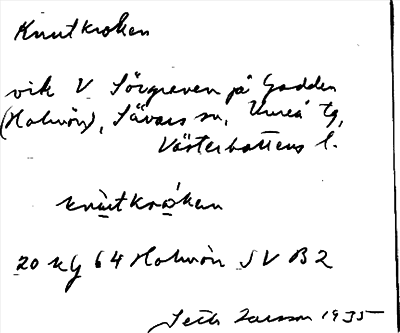 Knutkroken
vik V Sörgraven på Gadden
(Holmön), Sävars sn, Umeå tg,
Västerbottens l.
knùtkrò̱ken
20 kg 64 Holmön SV B2
Seth Larsson 1935